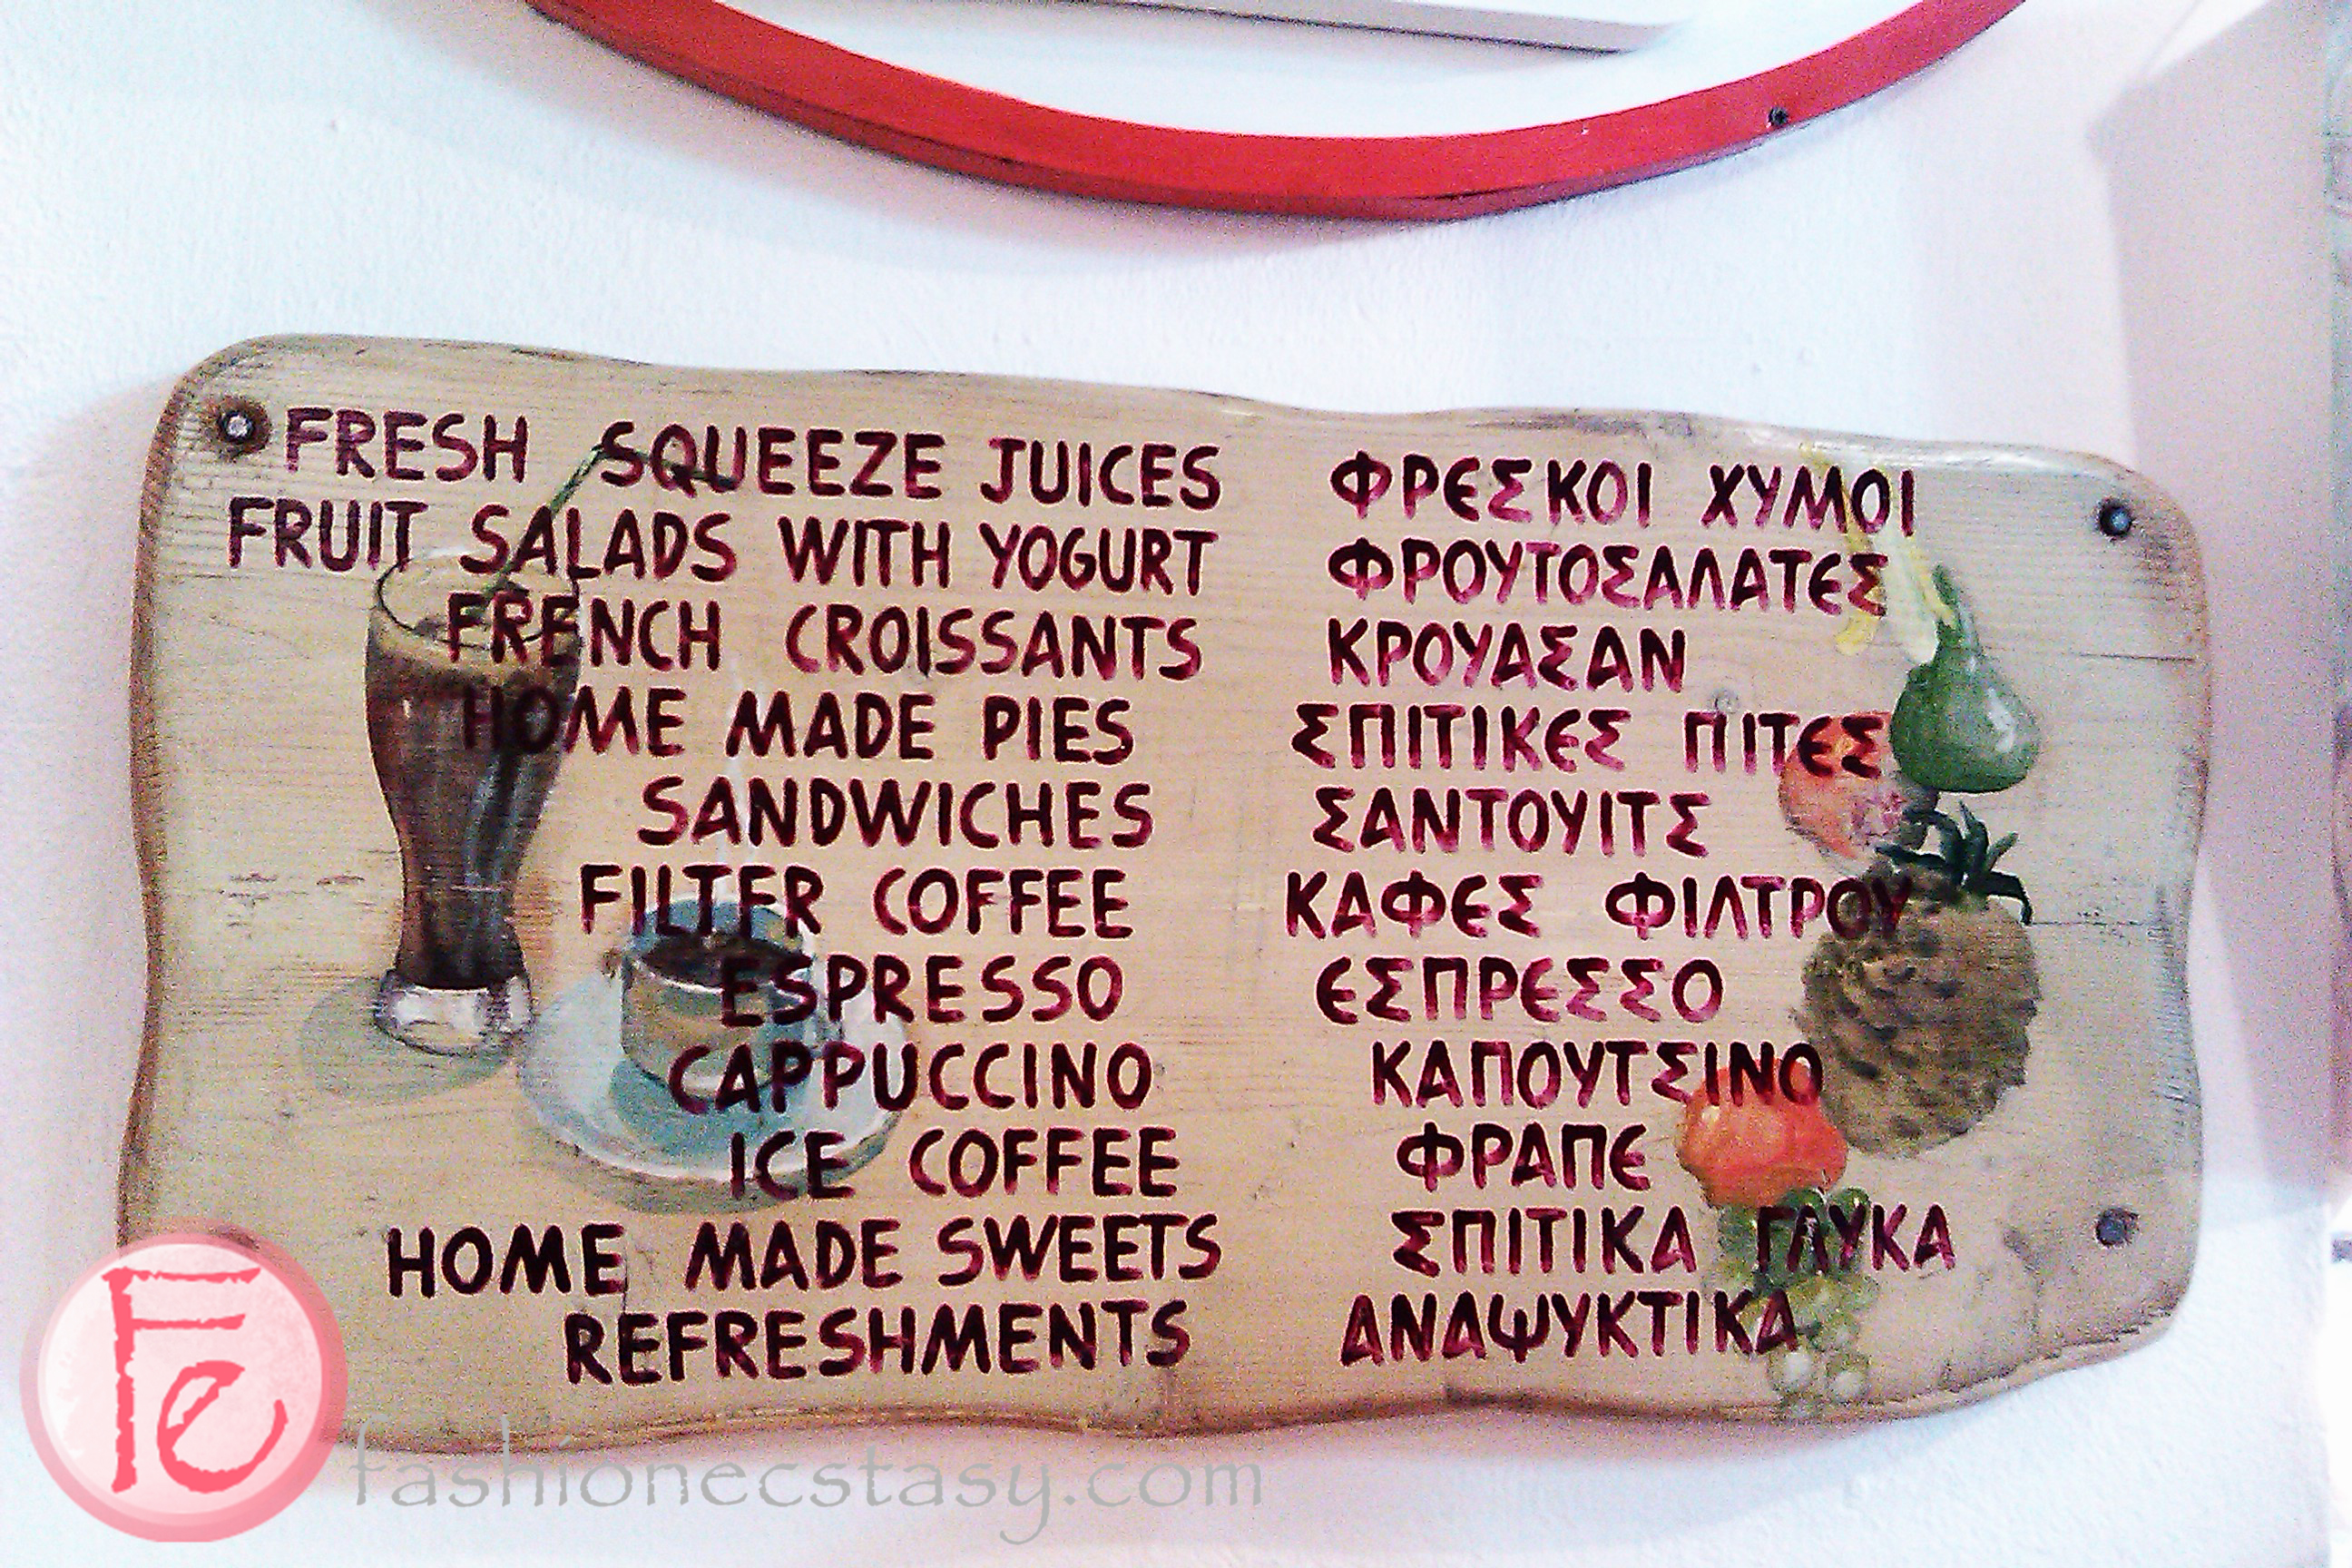 FRESH SQUEEZE JUICES ΦΡΕΣΚΟΙ ΧΥΜΟΙ
FRUIT SALADS WITH YOGURT ΦΡΟΥΤΟΣΑΛΑΤΕΣ
FRENCH CROISSANTS ΚΡΟΥΑΣΑΝ
HOME MADE PIES ΣΠΙΤΙΚΕΣ ΠΙΤΕΣ
SANDWICHES ΣΑΝΤΟΥΙΤΣ
FILTER COFFEE ΚΑΦΕΣ ΦΙΛΤΡΟΥ
ESPRESSO ΕΣΠΡΕΣΣΟ
CAPPUCCINO ΚΑΠΟΥΤΣΙΝΟ
ICE COFFEE ΦΡΑΠΕ
HOME MADE SWEETS ΣΠΙΤΙΚΑ ΓΛΥΚΑ
REFRESHMENTS ΑΝΑΨΥΚΤΙΚΑ
Fe
fashionecstasy.com